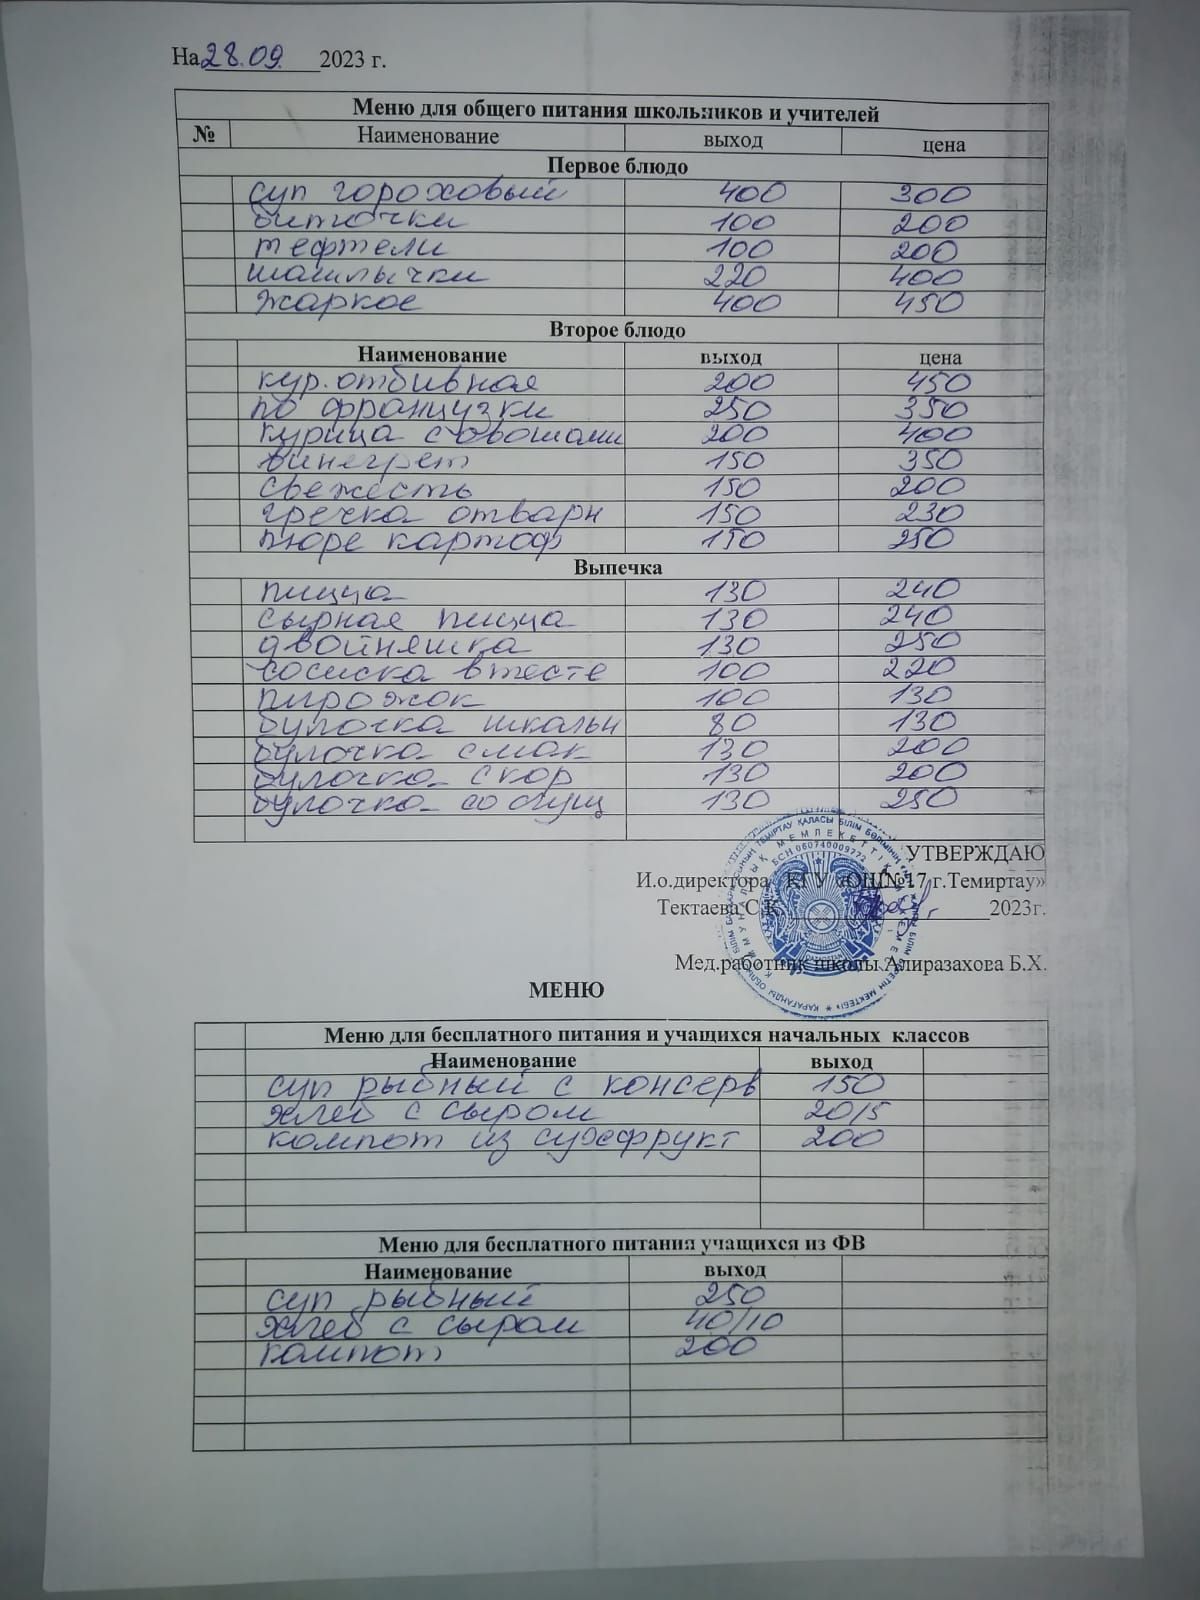 На 28.09. 2023 г.
Меню для общего питания школьников и учителей
№ Наименование выход цена
Первое блюдо
суп гороховый 400 300
биточки 100 200
тефтели 100 200
шашлычки 220 400
жаркое 400 450
Второе блюдо
Наименование выход цена
кур. отбивная 200 450
по французки 250 350
курица с овощами 200 400
винегрет 150 350
свежесть 150 200
гречка отварн 150 230
пюре картоф 150 250
Выпечка
пицца 130 240
сырная пицца 130 240
двойняшка 130 250
сосиска в тесте 100 220
пирожок 100 130
булочка школьн 80 130
булочка смак 130 200
булочка с кор 130 200
булочка со сгущ 130 250
УТВЕРЖДАЮ
И.о.директора КГУ «ОШ№17 г.Темиртау»
Тектаева С.К. 2023г.
Мед.работник школы Алиразахова Б.Х.
МЕНЮ
Меню для бесплатного питания и учащихся начальных классов
Наименование выход
суп рыбный с консерв 150
хлеб с сыром 20/5
компот из сухофрукт 200
Меню для бесплатного питания учащихся из ФВ
Наименование выход
суп рыбный 250
хлеб с сыром 40/10
компот 200